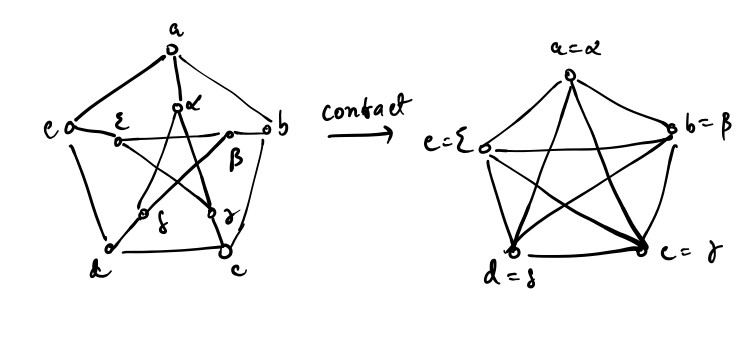 a
α
e
ε
β
b
δ
γ
d
c
contract
a=α
e=ε
b=β
d=δ
c=γ